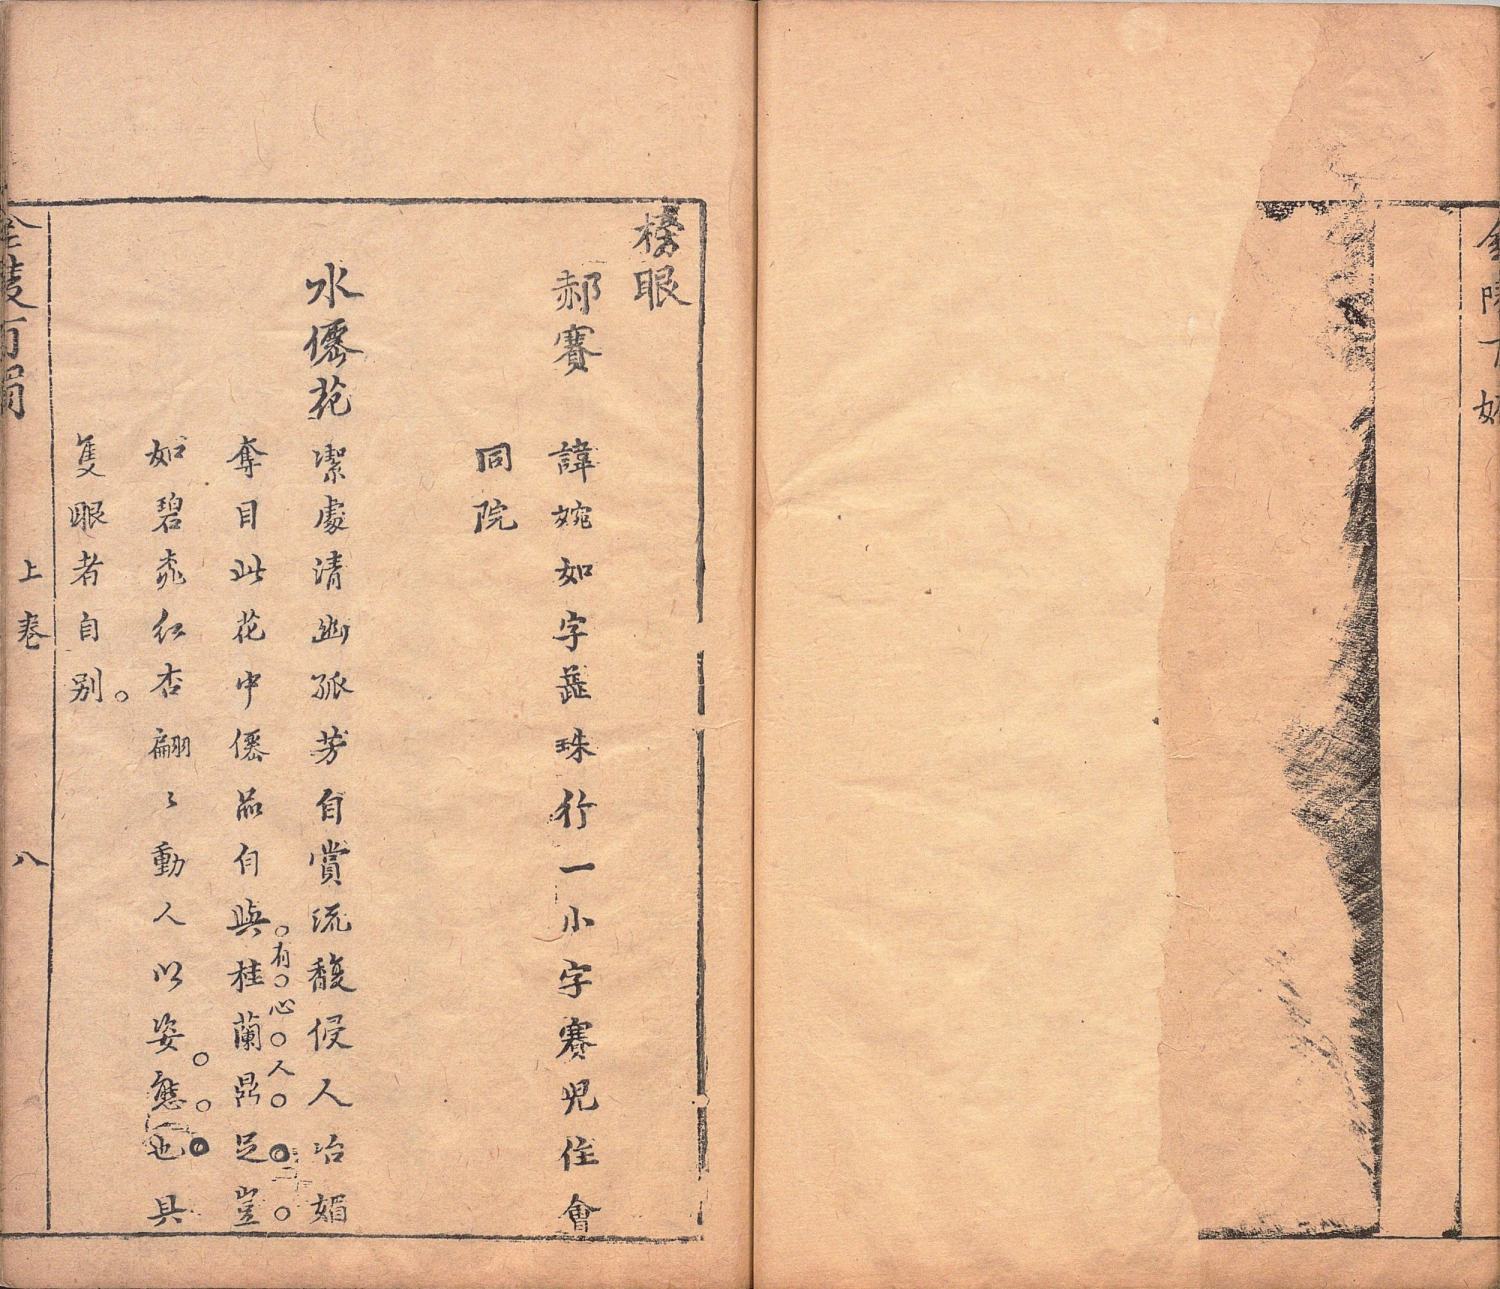 金陵百媚
榜眼
郝賽 諱婉如字蕋珠行一小字賽兒住會
同院
水僊花 潔處清幽孤芳自賞流馥侵人冶媚
有心人
奪目此花中僊品自與桂蘭鼎足豈
如碧桃紅杏翩〻動人以姿態也具
隻眼者自别。
金陵百媚 上卷 八